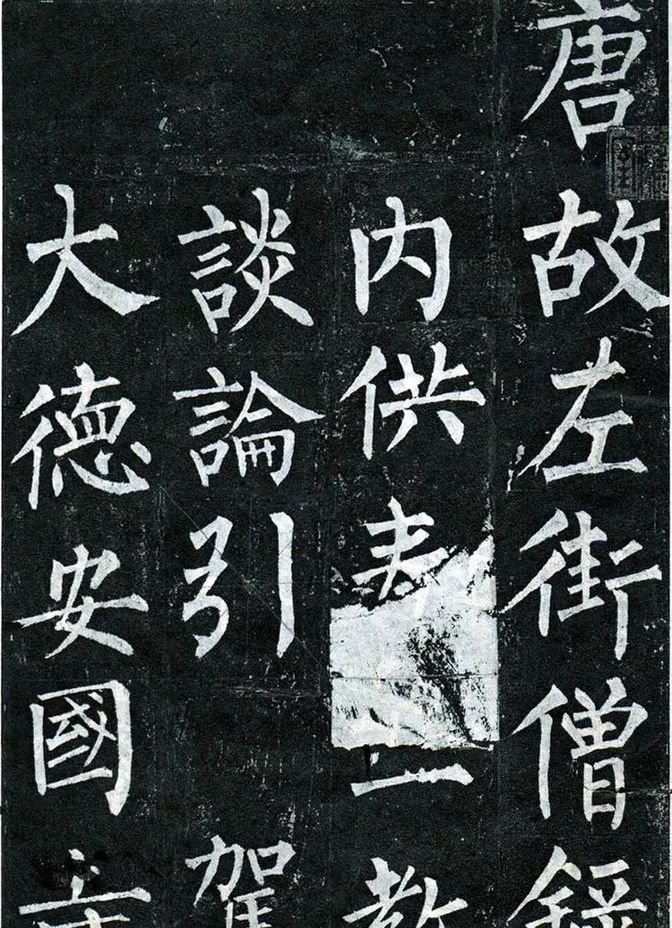 唐故左街僧
内供奉教
談論引駕
大德安國